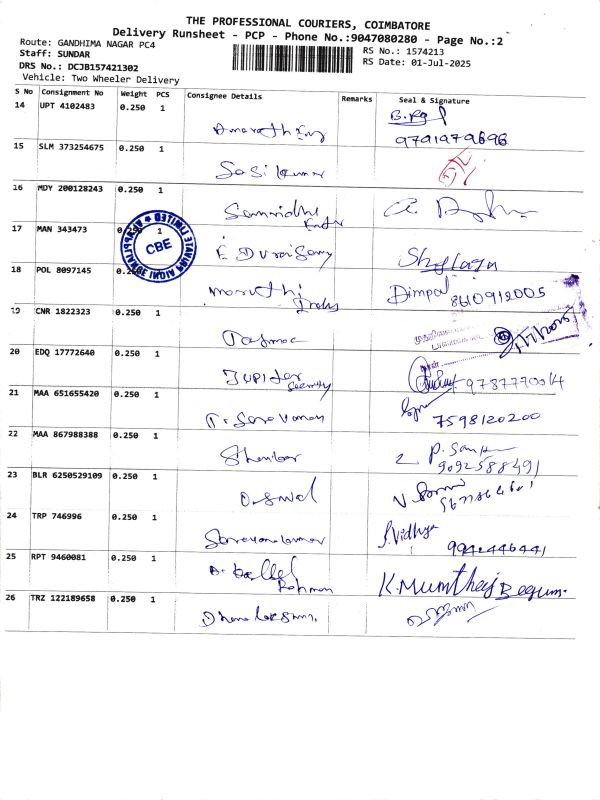 THE PROFESSIONAL COURIERS, COIMBATORE
Delivery Runsheet - PCP - Phone No.:9047080280 - Page No.:2
Route: GANDHIMA NAGAR PC4
Staff: SUNDAR
DRS No.: DCJB157421302
Vehicle: Two Wheeler Delivery
RS No.: 1574213
RS Date: 01-Jul-2025
S No Consignment No Weight PCS Consignee Details Remarks Seal & Signature
14 UPT 4102483 0.250 1
9791979696
15 SLM 373254675 0.250 1 Sasi kumar
16 MDY 200128243 0.250 1 Samridhi
17 MAN 343473 1 E Duraisamy
CBE
18 POL 8097145 1 Maruthi Dimpal 8610912005
19 CNR 1822323 0.250 1
20 EDQ 17772640 0.250 1 Jupiter Security 9787770014
21 MAA 651655420 0.250 1 T. Saravanan 7598120200
22 MAA 867988388 0.250 1 Shankar
9092588491
23 BLR 6250529109 0.250 1 Oswal
24 TRP 746996 0.250 1 Vidhya
9942446441
25 RPT 9460081 0.250 1 Rahman K. Mumthaj Begum.
26 TRZ 122189658 0.250 1